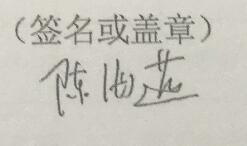 （签名或盖章）
陈